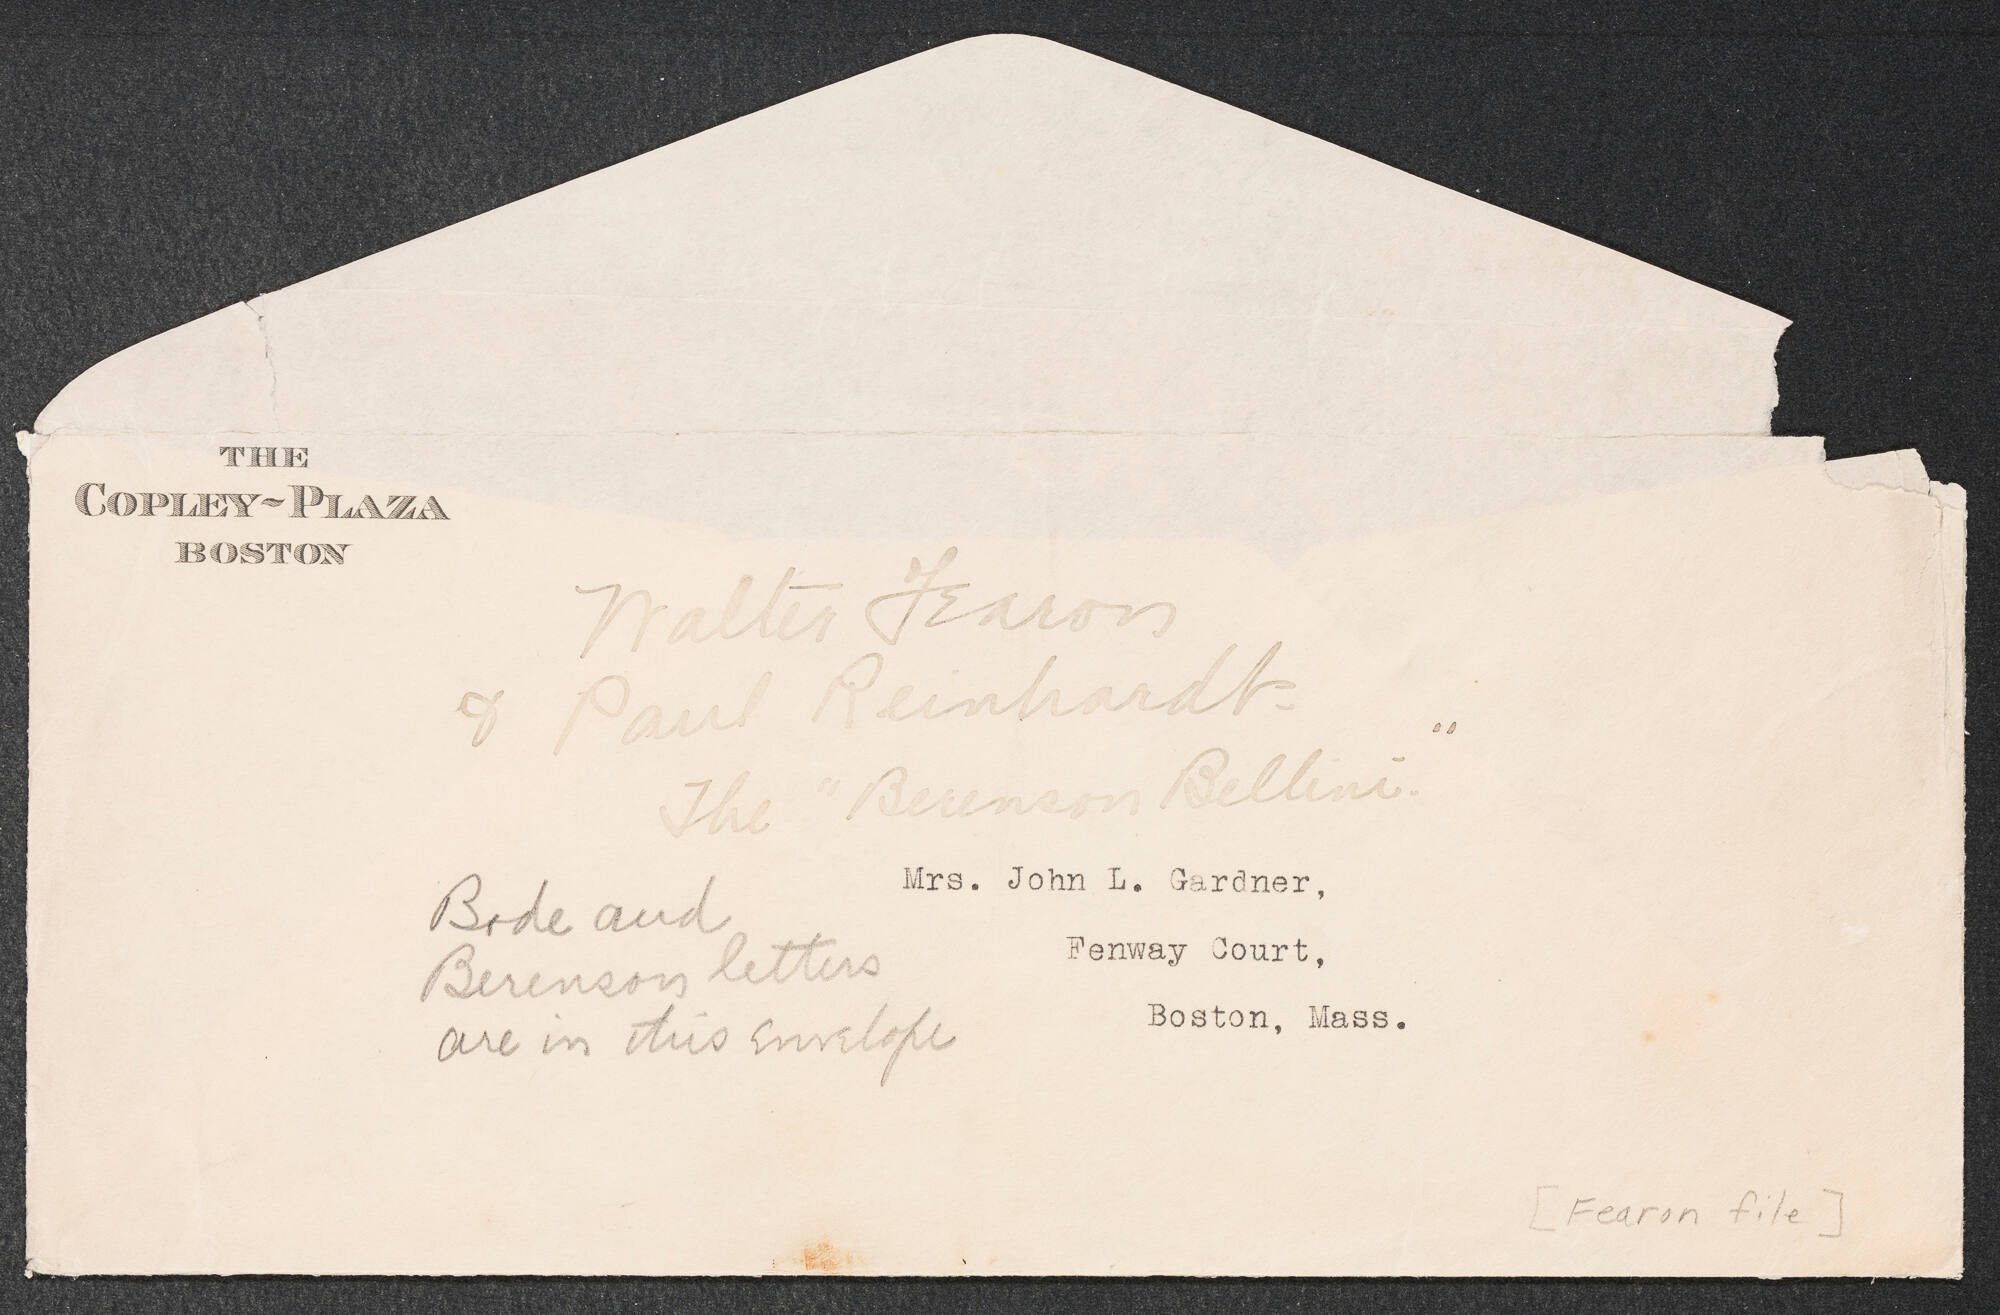 THE
COPLEY-PLAZA
BOSTON
Walter Fearon
& Paul Reinhardt
The "Berenson Bellini."
Mrs. John L. Gardner,
Fenway Court,
Boston, Mass.
Bode and
Berenson letters
are in this envelope
[Fearon file]